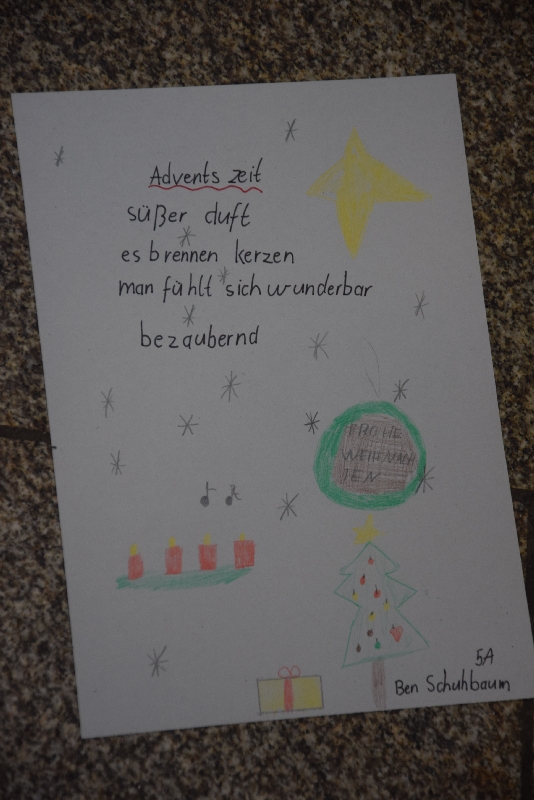 Advents zeit
süßer duft
es brennen kerzen
man fühlt sich wunderbar
bezaubernd
FROHE
WEIHNACH
TEN
5A
Ben Schuhbaum